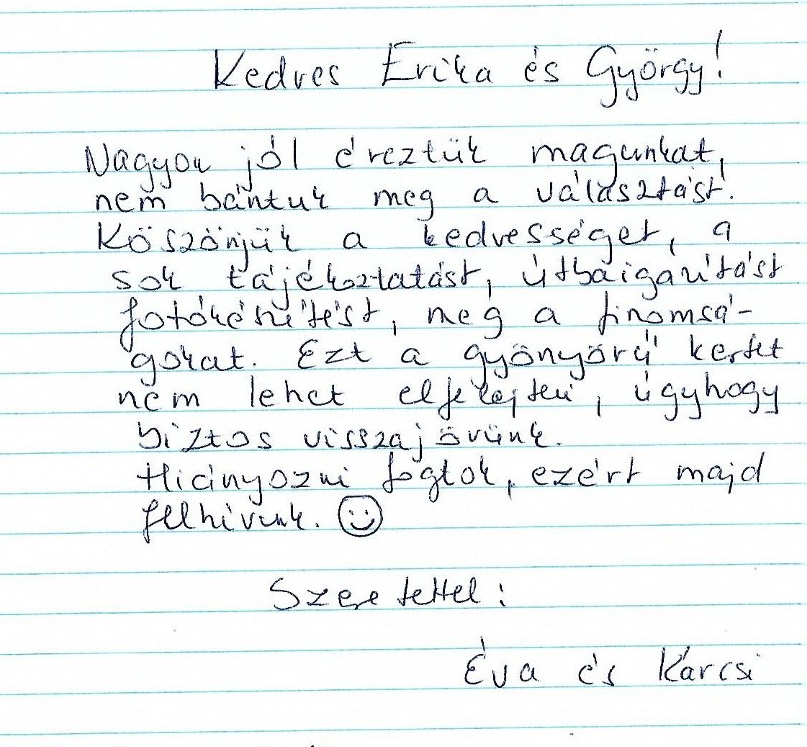 Kedves Erika és György!
Nagyon jól éreztük magunkat,
nem bántuk meg a választást!
Köszönjük a kedvességet, a
sok tájékoztatást, útbaigazítást
fotókészítést, meg a finomsá-
gokat. Ezt a gyönyörű kertet
nem lehet elfelejteni, úgyhogy
biztos visszajövünk.
Hiányozni fogtok, ezért majd
felhívunk. ☺
Szeretettel:
Éva és Karcsi